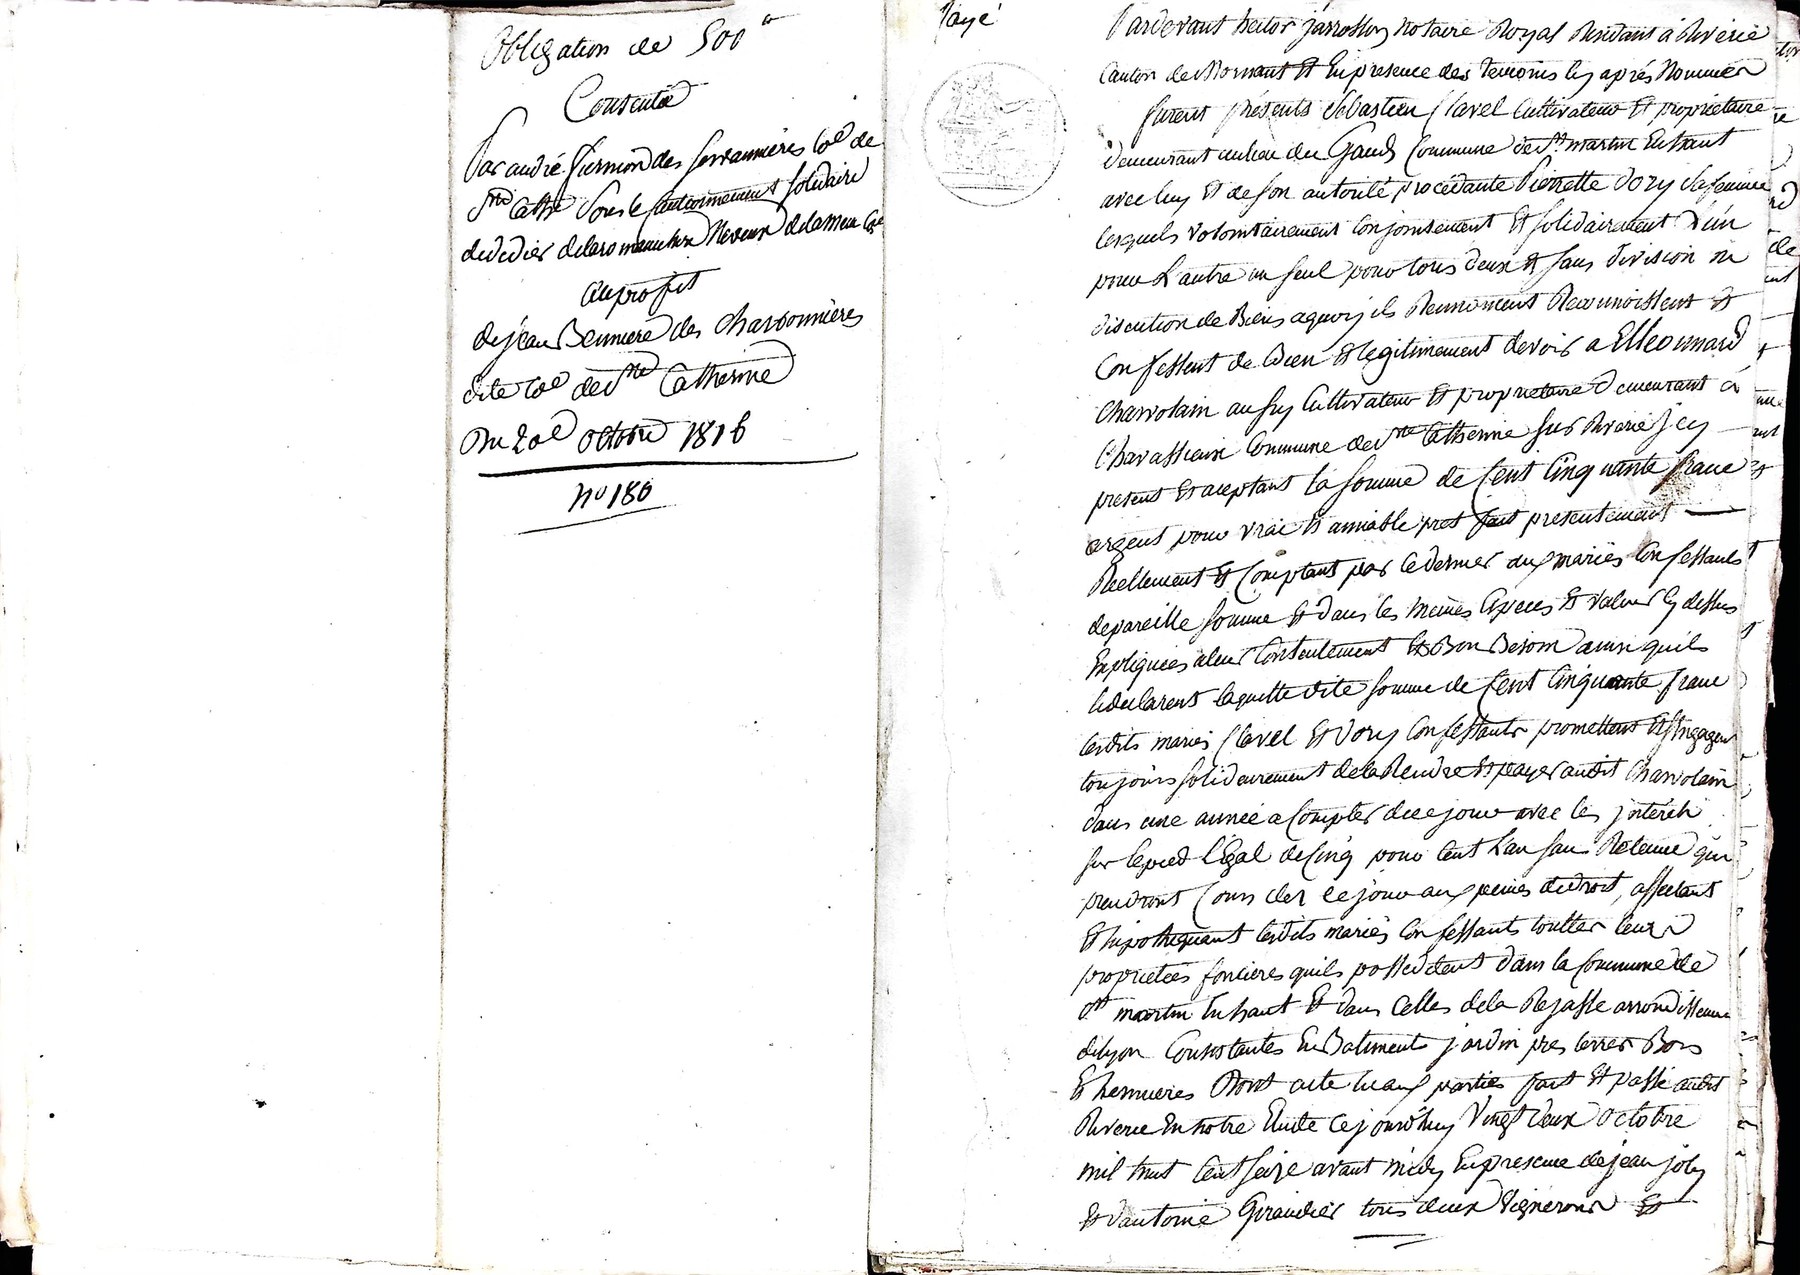 Obligation de 500 #
Consentie
Par andré guernon des Charbonnières Coe de
Ste Cathe Sous le Cautionnement Solidaire
de didier delaromanichère Neveux de la meme Coe
au profit
de jean Bernière des Charbonnières
dite Coe de Ste Catherine
Du 20e Octobre 1816
no 180
Payé
Pardevant hector jarrosson notaire Royal Residant à Riverie
Canton de Mornant Et En presence des Temoins Cy après Nommés
furent présents Sébastien Clavel Cultivateur Et propriétaire
demeurant au lieu du Gand Commune de St martin En haut
avec luy Et de Son autorité procédante Pierrette Vory Sa femme
lesquels volontairement Conjointement Et Solidairement L'un
pour L'autre un seul pour tous deux Et Sans division ni
discution de Biens aquoy ils Renoncent Reconnoissent Et
Confessent de bien Et legitimement devoir a Elleonnard
Charvolain aussy Cultivateur Et propriétaire demeurant à
Chavassieux Commune de Ste Catherine Sur Riverie Jcy
present Et aceptant la Somme de Cent Cinquante franc
argent pour vrai Et amiable pret fait presentement
Reellement Et Comptant par Ce dernier aux mariés Confessants
de pareille Somme Et dans les memes Especes Et valeur Cy dessus
Expliquées aleur Contentement Et Bon Besoin ainsi quils
le declarent laquelle dite Somme de Cent Cinquante franc
lesdits mariés Clavel Et Vory Confessants promettent Et S'engagent
toujours Solidairement de la Rendre Et payer audit Charvolain
dans une année a Compter de ce jour avec les jnterets
Sur le pied Légal de Cinq pour Cent L'an Sans Retenue qui
prendront Cours des ce jour aux peines de droit, affectant
Et hipothequant lesdits mariés Confessants touttes leurs
proprietées foncieres quils possedent dans la Commune de
St martin En haut Et dans Celles de la Rajasse arrondissement
de Lyon Consistantes En Batiments jardin pres terres Bois
Et hermieres Dont acte lu aux parties fait Et passé audit
Riverie En notre Etude Ce jourd'huy Vingt deux Octobre
mil huit Cent Seize avant midy En presence de jean joly
Et d'antoine Giraudier tous deux Vignerons Et